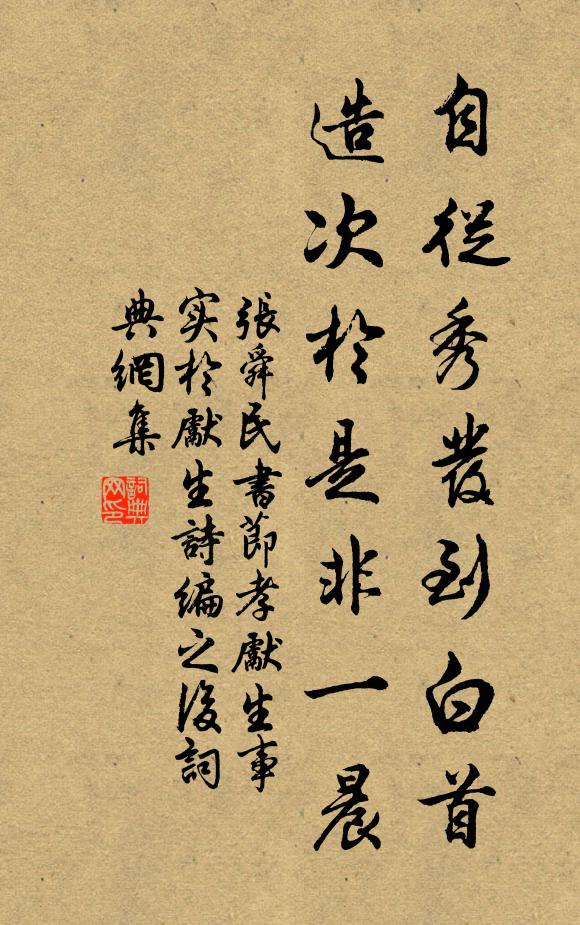 自從秀發到白首
造次於是非一晨
張舜民書節孝獻生事
实於獻生詩編之後詞
典網集
詞典
网印